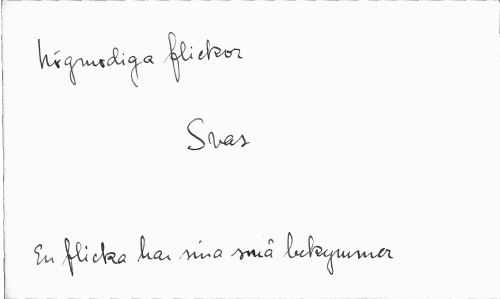 högmodiga flickor
Svar
En flicka har sina små bekymmer